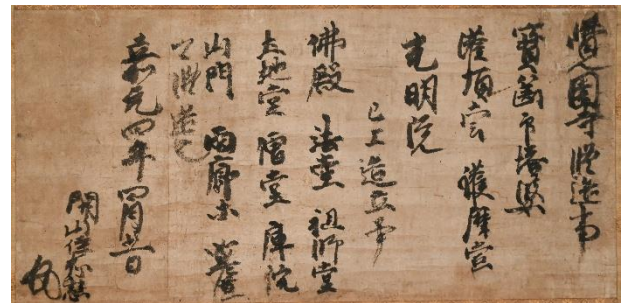 園寺修造事
寳篋印塔婆
灌頂堂 護摩堂
光明院
已上造立畢
佛殿 法堂 祖師堂
土地堂 僧堂 庫院
山門 両廊等
可修造
嘉元四年四月日
開山住持心慧